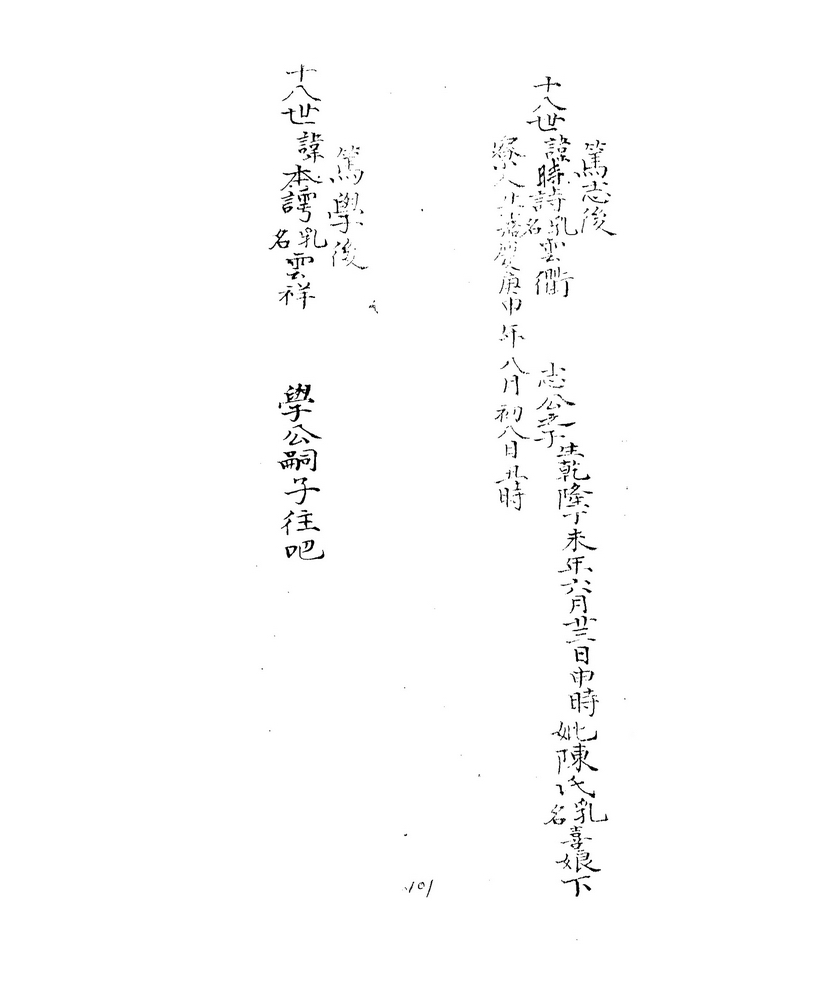 篤志後
十八世諱時詩乳名雲衢 志公之子生乾隆丁未年六月廿三日申時妣陳氏乳名喜娘下
寮人 嘉慶庚申年八月初八日丑時
篤學後
十八世諱本諤乳名雲祥 學公嗣子往吧
101